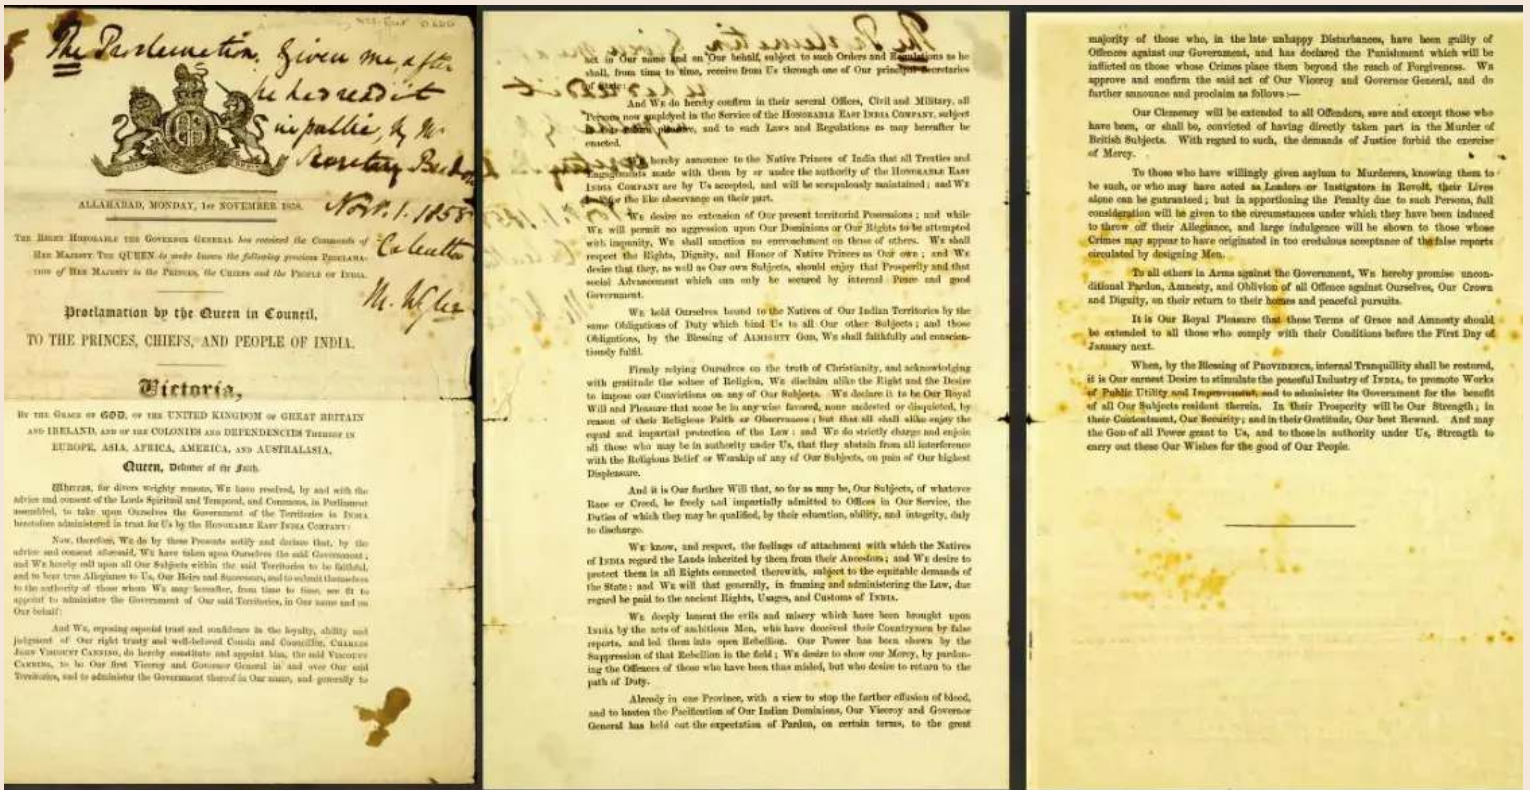 The Proclamation, Given me after
he had read it
in public, by Mr
Secretary
Novr. 1. 1858
Calcutta
ALLAHABAD, MONDAY, 1ST NOVEMBER 1858.
THE RIGHT HONORABLE THE GOVERNOR GENERAL has received the Commands of
HER MAJESTY THE QUEEN to make known the following gracious PROCLAMA-
TION of HER MAJESTY to the PRINCES, the CHIEFS and the PEOPLE OF INDIA.
Proclamation by the Queen in Council,
TO THE PRINCES, CHIEFS, AND PEOPLE OF INDIA.
Victoria,
BY THE GRACE OF GOD, OF THE UNITED KINGDOM OF GREAT BRITAIN
AND IRELAND, AND OF THE COLONIES AND DEPENDENCIES THEREOF IN
EUROPE, ASIA, AFRICA, AMERICA, AND AUSTRALASIA,
Queen, Defender of the Faith.
Whereas, for divers weighty reasons, We have resolved, by and with the
advice and consent of the Lords Spiritual and Temporal, and Commons, in Parliament
assembled, to take upon Ourselves the Government of the Territories in INDIA
heretofore administered in trust for Us by the HONORABLE EAST INDIA COMPANY:
Now, therefore, We do by these Presents notify and declare that, by the
advice and consent aforesaid, WE have taken upon Ourselves the said Government;
and WE hereby call upon all Our Subjects within the said Territories to be faithful,
and to bear true Allegiance to Us, Our Heirs and Successors, and to submit themselves
to the authority of those whom WE may hereafter, from time to time, see fit to
appoint to administer the Government of Our said Territories, in Our name and on
Our behalf:
And WE, reposing especial trust and confidence in the loyalty, ability and
judgment of Our right trusty and well-beloved Cousin and Councillor, CHARLES
JOHN VISCOUNT CANNING, do hereby constitute and appoint him, the said VISCOUNT
CANNING, to be Our first Viceroy and Governor General in and over Our said
Territories, and to administer the Government thereof in Our name, and generally to
act in Our name and on Our behalf, subject to such Orders and Regulations as he
shall, from time to time, receive from Us through one of Our principal Secretaries
of State:
And WE do hereby confirm in their several Offices, Civil and Military, all
Persons now employed in the Service of the HONORABLE EAST INDIA COMPANY, subject
to Our future pleasure, and to such Laws and Regulations as may hereafter be
enacted.
hereby announce to the Native Princes of India that all Treaties and
Engagements made with them by or under the authority of the HONORABLE EAST
INDIA COMPANY are by Us accepted, and will be scrupulously maintained; and WE
look for the like observance on their part.
WE desire no extension of Our present territorial Possessions; and while
WE will permit no aggression upon Our Dominions or Our Rights to be attempted
with impunity, WE shall sanction no encroachment on those of others. WE shall
respect the Rights, Dignity, and Honor of Native Princes as Our own; and WE
desire that they, as well as Our own Subjects, should enjoy that Prosperity and that
social Advancement which can only be secured by internal Peace and good
Government.
WE hold Ourselves bound to the Natives of Our Indian Territories by the
same Obligations of Duty which bind Us to all Our other Subjects; and those
Obligations, by the Blessing of ALMIGHTY GOD, WE shall faithfully and conscien-
tiously fulfil.
Firmly relying Ourselves on the truth of Christianity, and acknowledging
with gratitude the solace of Religion, WE disclaim alike the Right and the Desire
to impose our Convictions on any of Our Subjects. WE declare it to be Our Royal
Will and Pleasure that none be in any wise favored, none molested or disquieted, by
reason of their Religious Faith or Observances; but that all shall alike enjoy the
equal and impartial protection of the Law: and WE do strictly charge and enjoin
all those who may be in authority under Us, that they abstain from all interference
with the Religious Belief or Worship of any of Our Subjects, on pain of Our highest
Displeasure.
And it is Our further Will that, so far as may be, Our Subjects, of whatever
Race or Creed, be freely and impartially admitted to Offices in Our Service, the
Duties of which they may be qualified, by their education, ability, and integrity, duly
to discharge.
WE know, and respect, the feelings of attachment with which the Natives
of INDIA regard the Lands inherited by them from their Ancestors; and WE desire to
protect them in all Rights connected therewith, subject to the equitable demands of
the State: and WE will that generally, in framing and administering the Law, due
regard be paid to the ancient Rights, Usages, and Customs of INDIA.
WE deeply lament the evils and misery which have been brought upon
INDIA by the acts of ambitious Men, who have deceived their Countrymen by false
reports, and led them into open Rebellion. Our Power has been shown by the
Suppression of that Rebellion in the field; WE desire to show our Mercy, by pardon-
ing the Offences of those who have been thus misled, but who desire to return to the
path of Duty.
Already in one Province, with a view to stop the further effusion of blood,
and to hasten the Pacification of Our Indian Dominions, Our Viceroy and Governor
General has held out the expectation of Pardon, on certain terms, to the great
majority of those who, in the late unhappy Disturbances, have been guilty of
Offences against our Government, and has declared the Punishment which will be
inflicted on those whose Crimes place them beyond the reach of Forgiveness. WE
approve and confirm the said act of Our Viceroy and Governor General, and do
further announce and proclaim as follows:—
Our Clemency will be extended to all Offenders, save and except those who
have been, or shall be, convicted of having directly taken part in the Murder of
British Subjects. With regard to such, the demands of Justice forbid the exercise
of Mercy.
To those who have willingly given asylum to Murderers, knowing them to
be such, or who may have acted as Leaders or Instigators in Revolt, their Lives
alone can be guaranteed; but in apportioning the Penalty due to such Persons, full
consideration will be given to the circumstances under which they have been induced
to throw off their Allegiance, and large indulgence will be shown to those whose
Crimes may appear to have originated in too credulous acceptance of the false reports
circulated by designing Men.
To all others in Arms against the Government, WE hereby promise uncon-
ditional Pardon, Amnesty, and Oblivion of all Offence against Ourselves, Our Crown
and Dignity, on their return to their homes and peaceful pursuits.
It is Our Royal Pleasure that these Terms of Grace and Amnesty should
be extended to all those who comply with their Conditions before the First Day of
January next.
When, by the Blessing of PROVIDENCE, internal Tranquillity shall be restored,
it is Our earnest Desire to stimulate the peaceful Industry of INDIA, to promote Works
of Public Utility and Improvement, and to administer its Government for the benefit
of all Our Subjects resident therein. In their Prosperity will be Our Strength; in
their Contentment, Our Security; and in their Gratitude, Our best Reward. And may
the God of all Power grant to Us, and to those in authority under Us, Strength to
carry out these Our Wishes for the good of Our People.